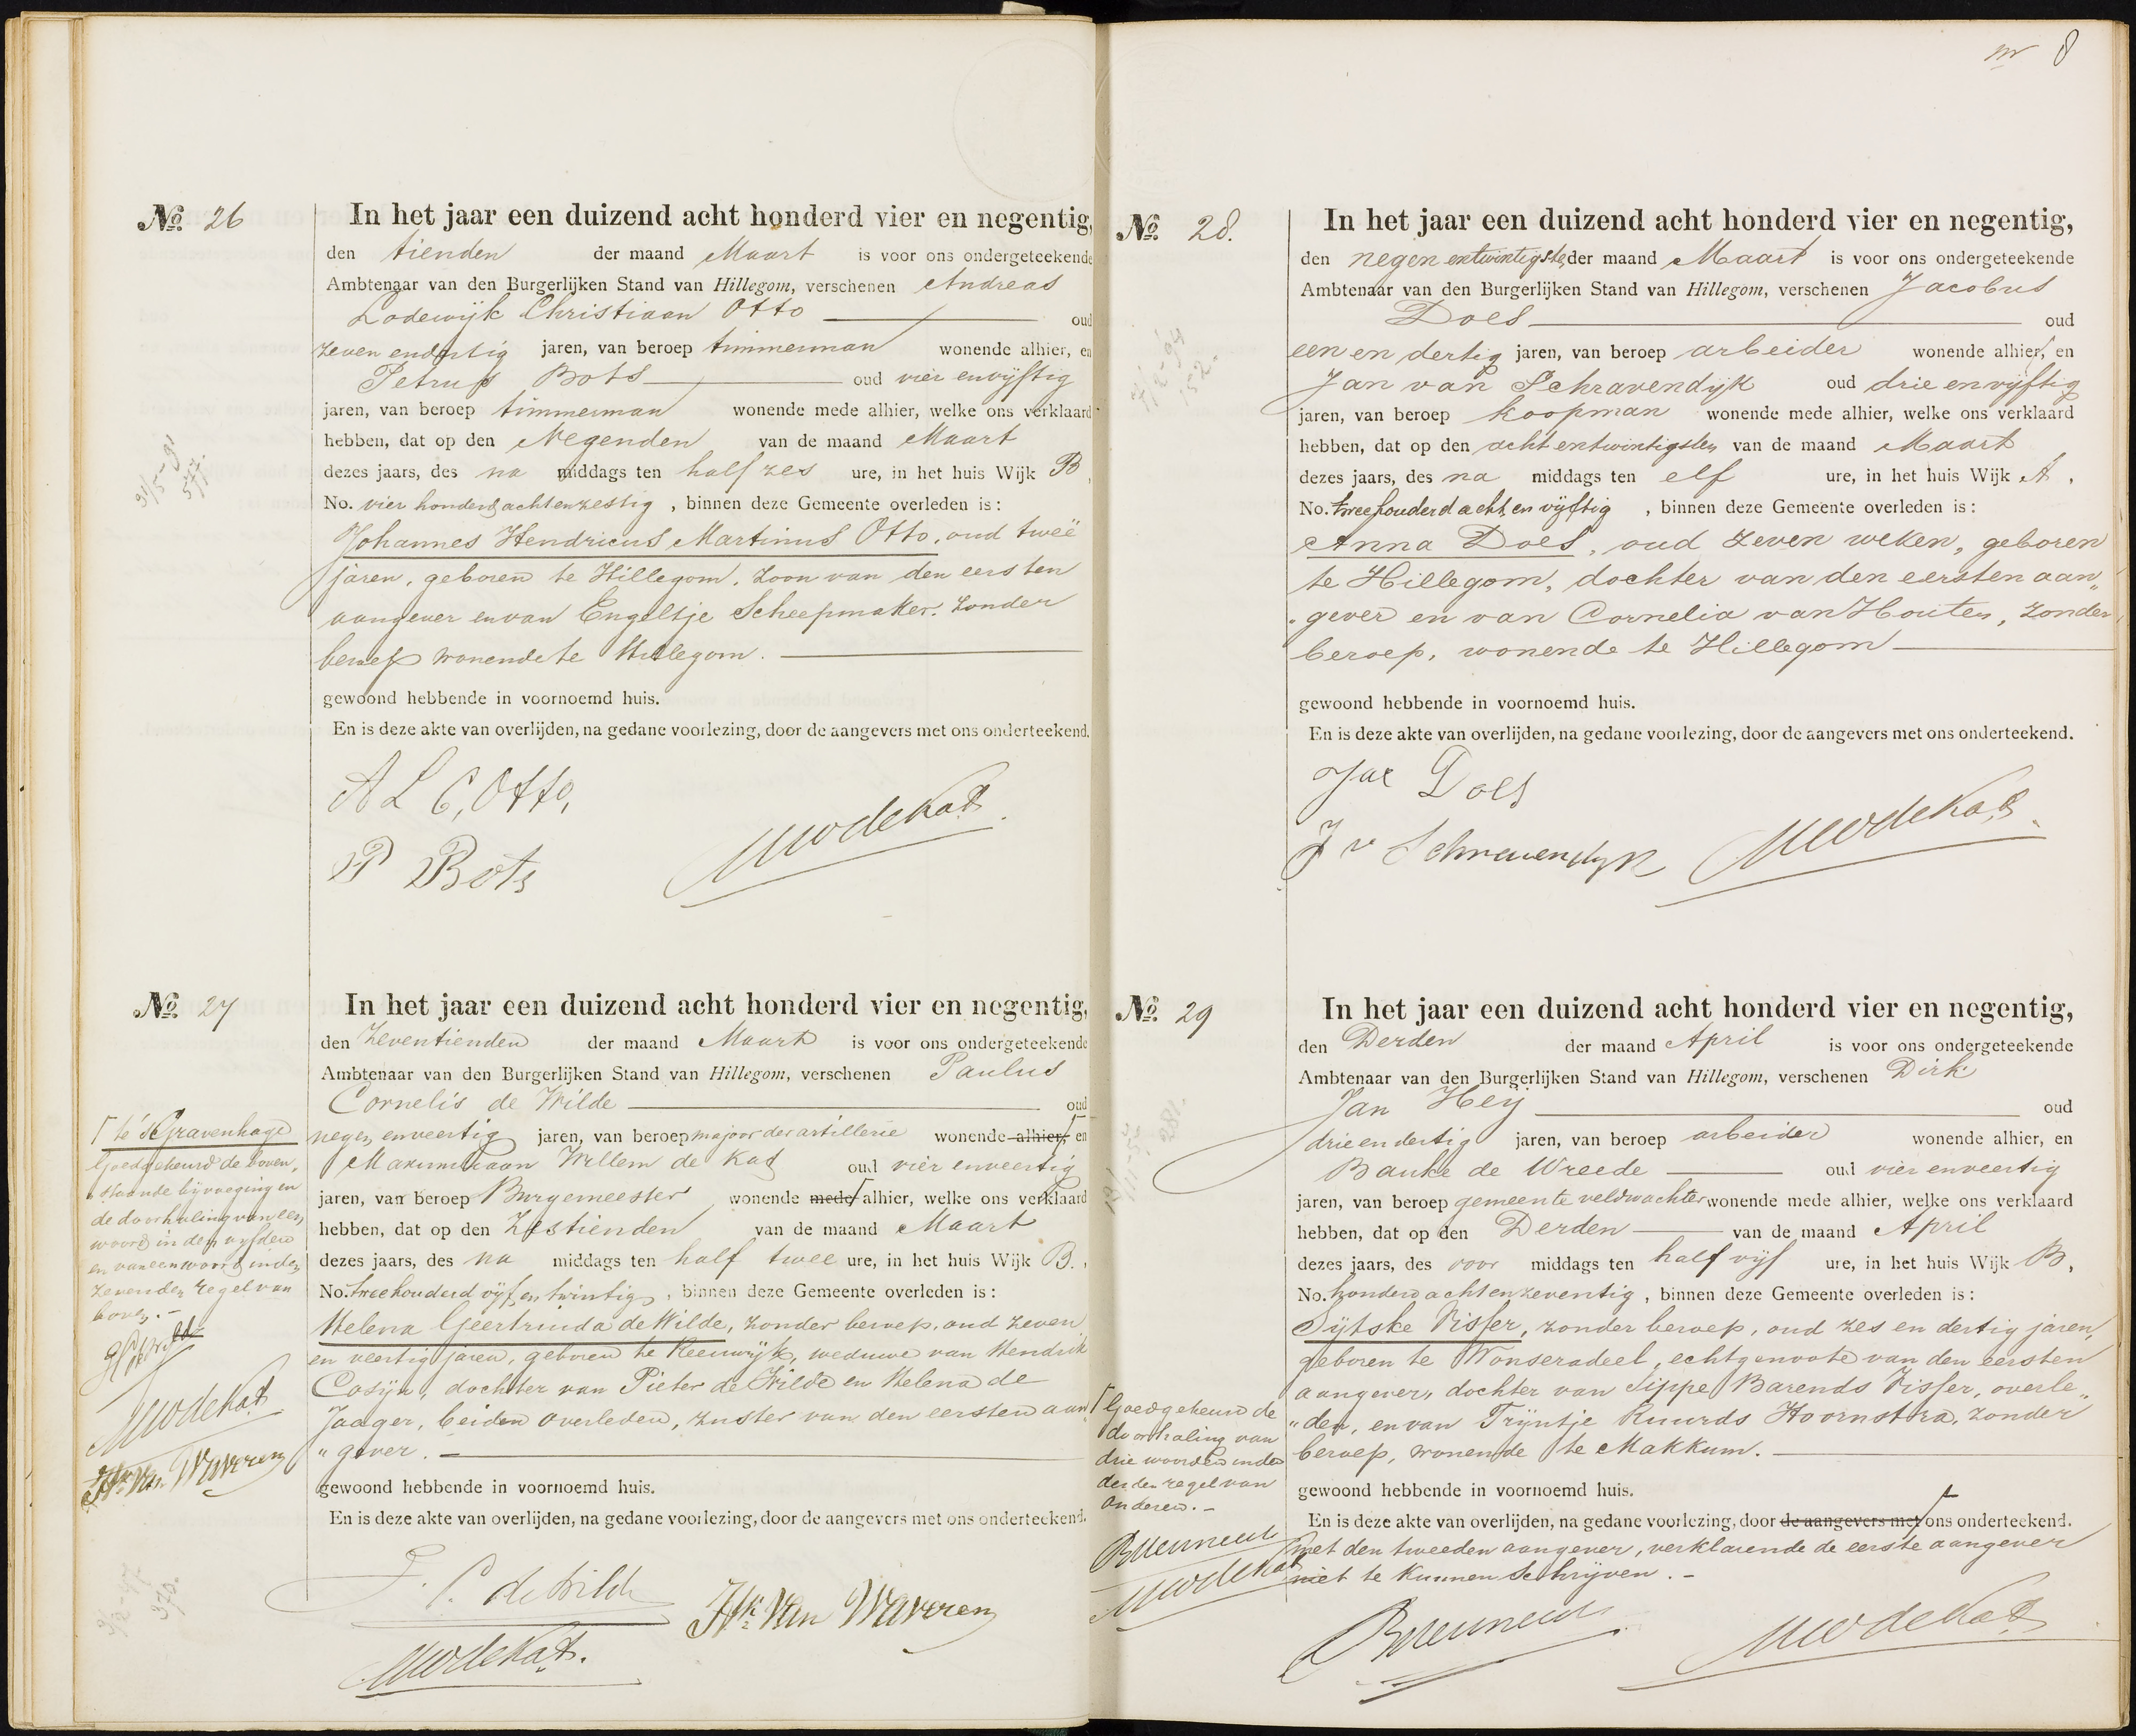 No. 26
In het jaar een duizend acht honderd vier en negentig,
den tienden der maand Maart is voor ons ondergeteekende
Ambtenaar van den Burgerlijken Stand van Hillegom, verschenen Andreas
Lodewijk Christiaan Otto oud
zeven endertig jaren, van beroep timmerman wonende alhier, en
Petrus Bots oud vier envijftig
jaren, van beroep timmerman wonende mede alhier, welke ons verklaard
hebben, dat op den Negenden van de maand Maart
dezes jaars, des na middags ten half zes ure, in het huis Wijk B,
No. vier honderd achtenzestig, binnen deze Gemeente overleden is:
Johannes Hendricus Martinus Otto, oud tweë
jaren, geboren te Hillegom, zoon van den eersten
aangever envan Engeltje Scheepmaker, zonder
beroep wonende te Hillegom.
gewoond hebbende in voornoemd huis.
En is deze akte van overlijden, na gedane voorlezing, door de aangevers met ons onderteekend.
A L C, Otto,
P Bots
MWdeKat.
No. 27
In het jaar een duizend acht honderd vier en negentig,
den Zeventienden der maand Maart is voor ons ondergeteekende
Ambtenaar van den Burgerlijken Stand van Hillegom, verschenen Paulus
Cornelis de Wilde oud
negen enveertig jaren, van beroep majoor der artillerie wonende alhier, en
Maximiliaan Willem de Kat oud vier enveertig
jaren, van beroep Burgemeester wonende mede alhier, welke ons verklaard
hebben, dat op den Zestienden van de maand Maart
dezes jaars, des na middags ten half twee ure, in het huis Wijk B.,
No. tweehonderd vijf en twintig, binnen deze Gemeente overleden is:
Helena Geertruida de Wilde, zonder beroep, oud zeven
en veertig jaren, geboren te Reeuwijk, weduwe van Hendrik
Cosijn, dochter van Pieter de Wilde en Helena de
Jaager, beiden overleden, zuster van den eersten aan„
„gever.
gewoond hebbende in voornoemd huis.
En is deze akte van overlijden, na gedane voorlezing, door de aangevers met ons onderteekend.
P. C. de Wilde
Hk van Waveren
MWdeKat.
te 's Gravenhage
Goedgekeurd de boven„
„staande bijvoeging en
de doorhaling van een
woord in den vijfden
en van een woord in den
zevenden regel van
boven.-
MWdeKat
Hk van Waveren
8
No. 28.
In het jaar een duizend acht honderd vier en negentig,
den negen entwintigste der maand Maart is voor ons ondergeteekende
Ambtenaar van den Burgerlijken Stand van Hillegom, verschenen Jacobus
Does oud
een en dertig jaren, van beroep arbeider wonende alhier, en
Jan van Schravendijk oud drie en vijftig
jaren, van beroep koopman wonende mede alhier, welke ons verklaard
hebben, dat op den acht entwintigsten van de maand Maart
dezes jaars, des na middags ten elf ure, in het huis Wijk A,
No. tweehonderd acht en vijftig, binnen deze Gemeente overleden is:
Anna Does, oud zeven weken, geboren
te Hillegom, dochter van den eersten aan„
„gever en van Cornelia van Houten, zonder
beroep, wonende te Hillegom
gewoond hebbende in voornoemd huis.
En is deze akte van overlijden, na gedane voorlezing, door de aangevers met ons onderteekend.
Jac Does
J v Schravendijk
MWdeKat.
No. 29
In het jaar een duizend acht honderd vier en negentig,
den Derden der maand April is voor ons ondergeteekende
Ambtenaar van den Burgerlijken Stand van Hillegom, verschenen Dirk
Jan Heij oud
drieendertig jaren, van beroep arbeider wonende alhier, en
Bauke de Wreede oud vier enveertig
jaren, van beroep gemeente veldwachter wonende mede alhier, welke ons verklaard
hebben, dat op den Derden van de maand April
dezes jaars, des voor middags ten half vijf ure, in het huis Wijk B,
No. honderd achtenzeventig, binnen deze Gemeente overleden is:
Sijtske Visser, zonder beroep, oud zes en dertig jaren,
geboren te Wonseradeel, echtgenoote van den eersten
aangever, dochter van Sippe Barends Visser, overle„
„den, envan Trijntje Ruurds Hoornstra, zonder
beroep, wonende te Makkum.
gewoond hebbende in voornoemd huis.
En is deze akte van overlijden, na gedane voorlezing, door de aangevers met ons onderteekend.
met den tweeden aangever, verklarende de eerste aangever
niet te kunnen schrijven.-
MWdeKat
Goedgekeurd de
doorhaling van
drie woorden in den
derden regel van
onderen.-
MWdeKat